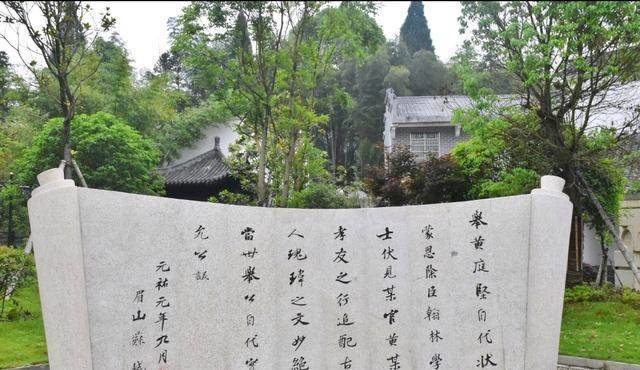 舉黃庭堅自代狀
蒙恩除臣翰林學
士伏見某官黃某
孝友之行追配古
人瑰瑋之文妙絕
當世舉以自代實
允公議
元祐元年九月
眉山蘇軾